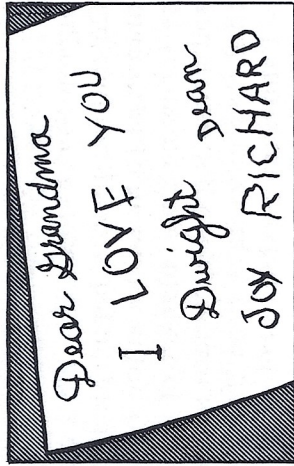 Dear Grandma
I LOVE YOU
Dwight Dean
JOY RICHARD